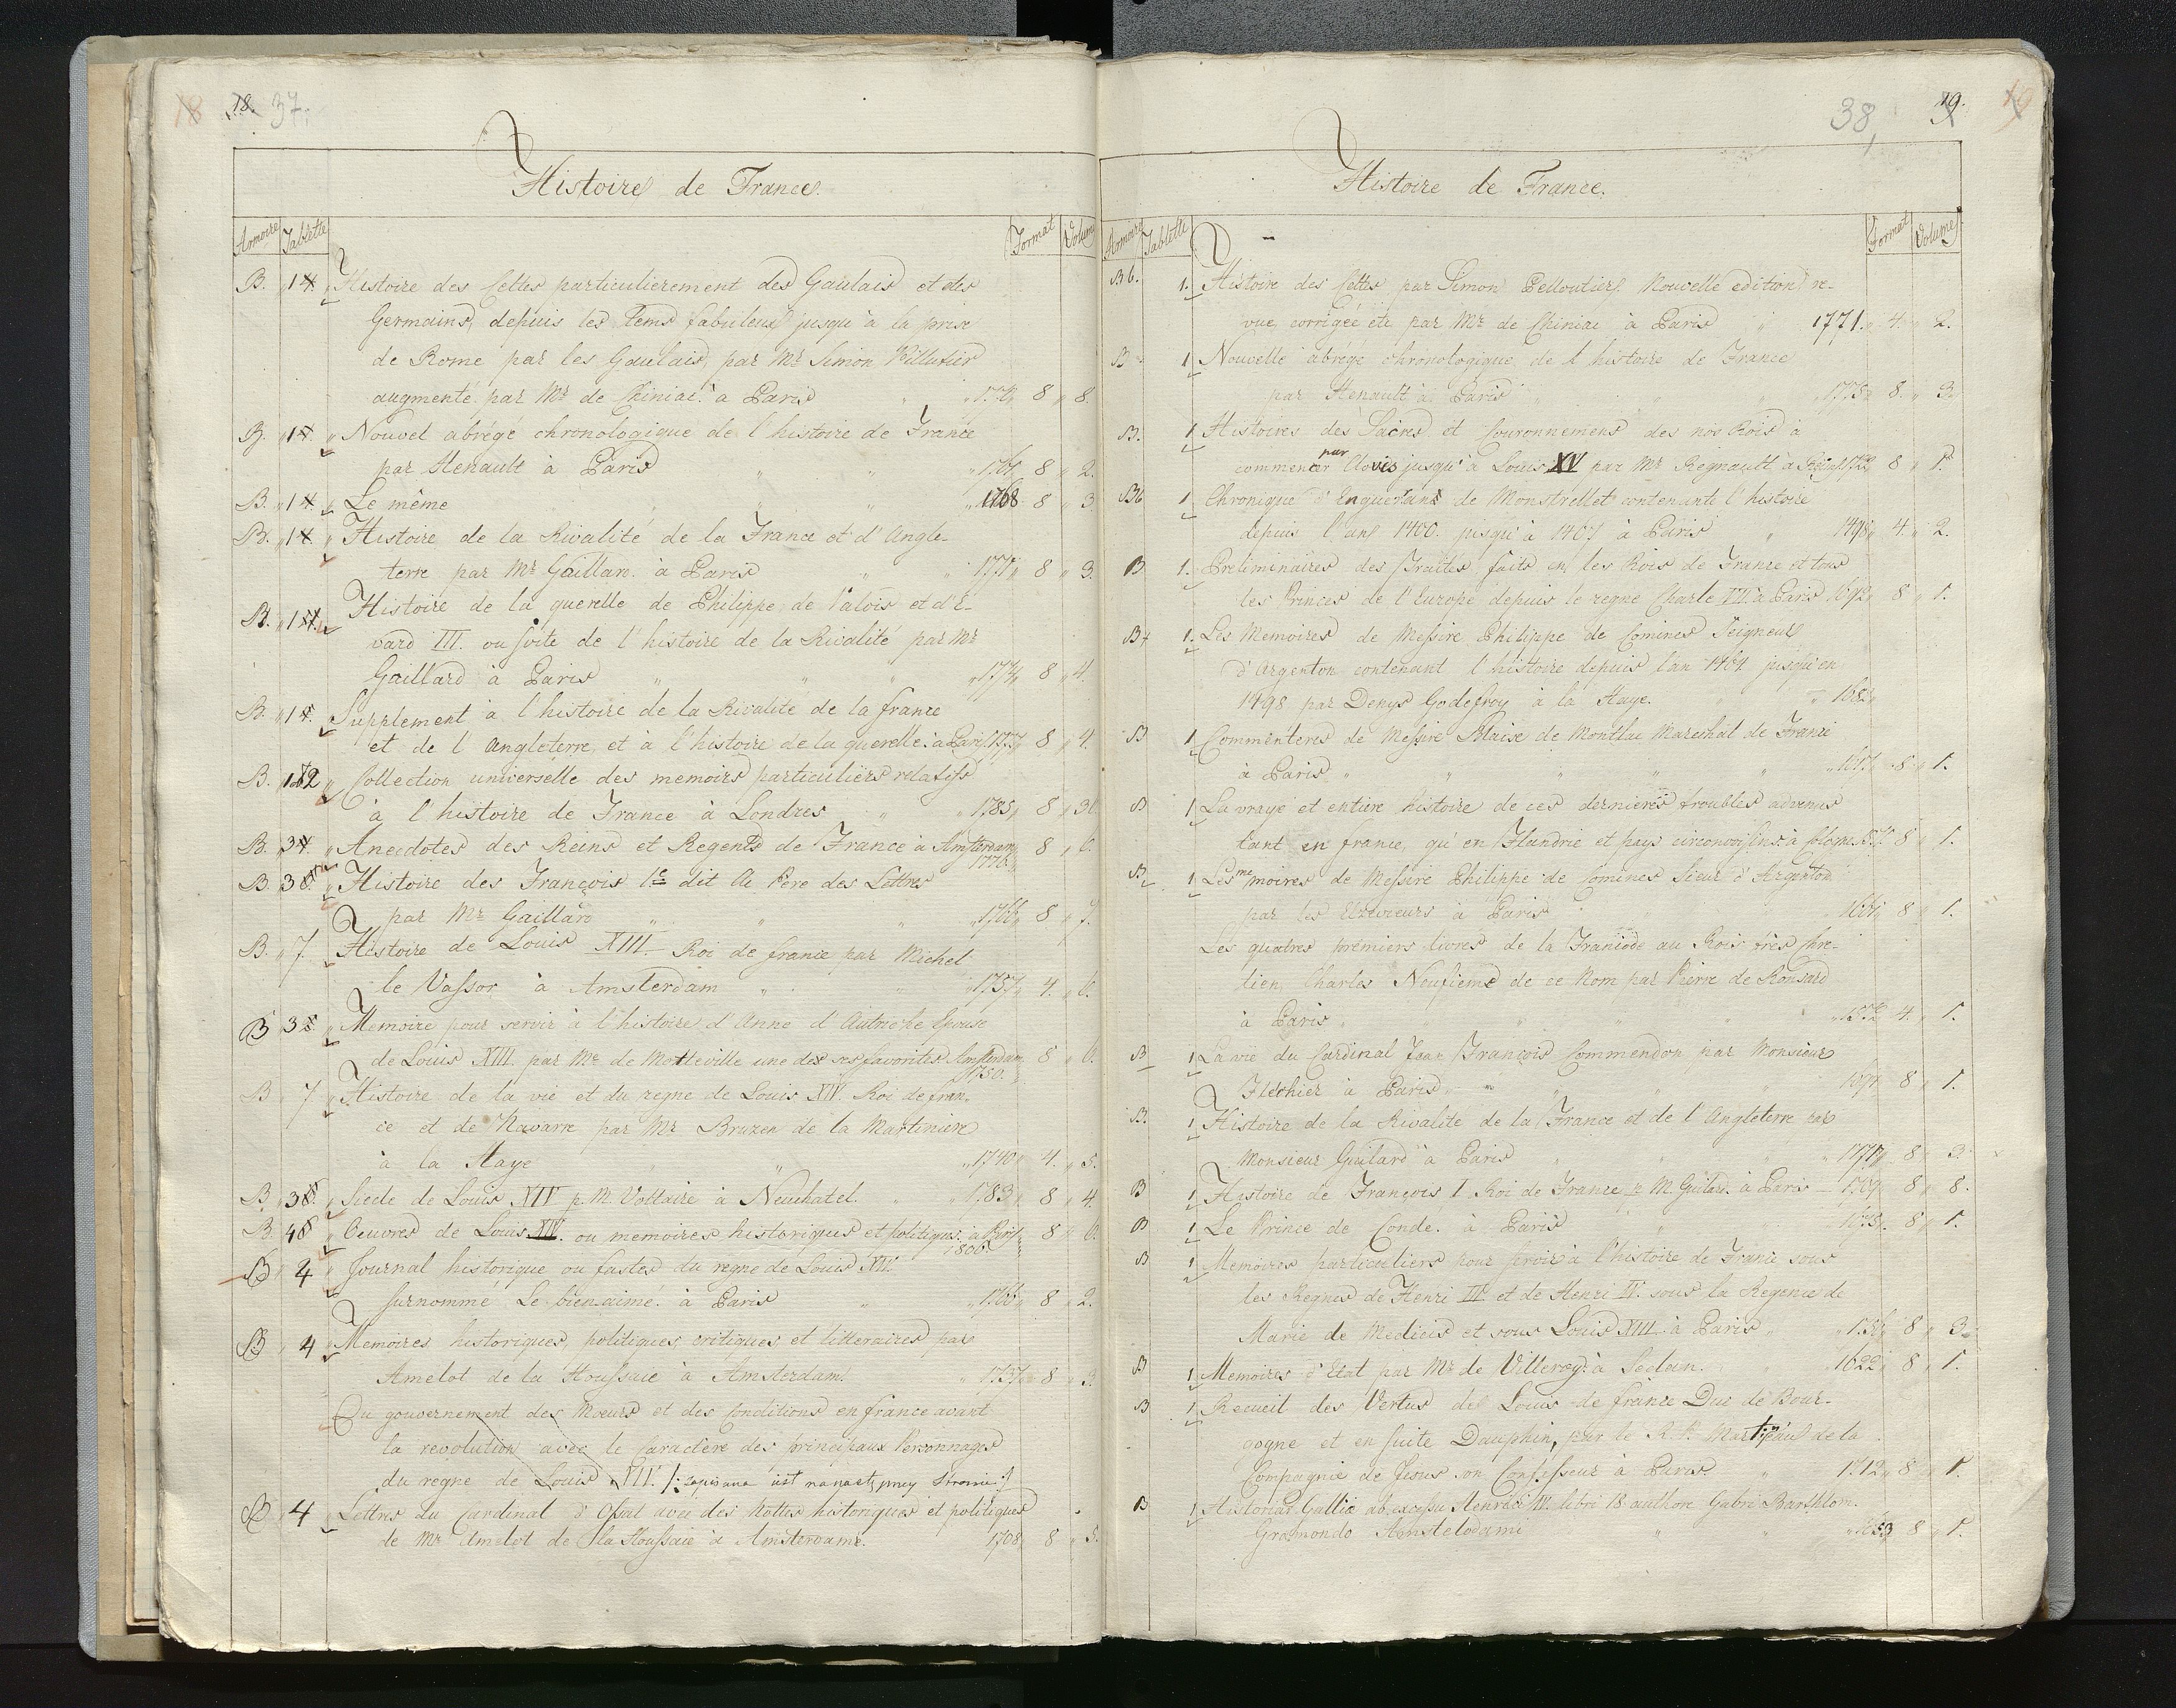 18. 37.
Histoire de France.
Armoire Tablette Format Volume
B. 1 Histoire des Celtes particulierement des Gaulais et des
Germains, depuis les tems fabuleux jusqu'à la prise
de Rome par les Gaulais, par Mr Simon
augmenté par Mr de Chiniac. à Paris 8 8.
B. 1 Nouvel abrégé chronologique de l'histoire de France
par Henault à Paris 8 2.
B. 1 Le même 1768 8 3
B. 1 Histoire de la Rivalité de la France et d'Angle-
terre par Mr Gaillard. à Paris 8 3.
B. 1 Histoire de la querelle de Philippe de Valois et d'E-
vard III. ou suite de l'histoire de la Rivalité par Mr
Gaillard à Paris 8 4.
B. 1 Supplement à l'histoire de la Rivalité de la france
et de l'Angleterre, et à l'histoire de la querelle. à Paris 8 4.
B. Collection universelle des memoirs particuliers relatifs
à l'histoire de France à Londres 1785 8
B. 3 Anecdotes des Reins et Regents de France à Amsterdam 8 6.
1776.
B. 3 Histoire des François 1e dit le Pere des Lettres
par Mr Gaillard 1766 8 7.
B. 7. Histoire de Louis XIII. Roi de france par Michel
le Vassor à Amsterdam 1757 4. 6.
B 3 Memoire pour servir à l'histoire d'Anne d'Autriche Epouse
de Louis XIII. par Me de Motteville une des ses favorites. Amsterdam 8 6.
1750.
B 7 Histoire de la vie et du regne de Louis XIV. Roi de fran-
ce et de Navarre par Mr Bruzen de la Martiniere
à la Haye 1740 4. 5.
B. 3 Siecle de Louis XIV p. M. Voltaire à Neuchatel. 1783 8 4.
B. 4 Oeuvres de Louis XIV. ou memoires historiques et politiques. à Paris 8 6.
1806.
B 4 Journal historique ou fastes du regne de Louis
surnommé Le bien aimé. à Paris 1766 8 2.
B 4 Memoires historiques, politiques, critiques, et litteraires par
Amelot de la Houssaie à Amsterdam. 1737 8 3
Du gouvernement des Moeurs et des Conditions en france avant
la revolution avec le Caractere des principaux Personnages
du regne de Louis
B 4 Lettres du Cardinal d'Ossat avec des Nottes historiques et politiques
de Mr Amelot de la Houssaie à Amsterdame. 1708 8 5.
38, 19.
Histoire de France.
Armoire Tablette Format Volumes
B 6. 1. Histoire des Celtes par Simon Pelloutier. Nouvelle edition re-
vue, corrigée etc par Mr de Chiniac à Paris 1771. 4. 2.
B 1 Nouvelle abrégé chronologique de l'histoire de France
par Henault à Paris 1775 8. 3.
B. 1 Histoires des Sacres et Couronnemens des nos Rois à
commencer par Clovis jusqu'à Louis XV par Mr Regnault à 8 1.
B6 1. Chronique d'Enguerans de Monstrellet contenante l'histoire
depuis l'ans 1400. jusqu'à à Paris 1498 4. 2.
B 1. Preliminaires des Traités faits en. les Rois de France et tous
les Princes de l'Europe depuis le regne Charle à Paris 1692 8 1.
B+ 1. Les Memoires de Messire Philippe de Comines Seigneur
d'Argenton contenant l'histoire depuis l'an 1464 jusqu'en
1498 par Denys Godefroy à la Haye.
B 1 Commenteres de Messire Blaise de Montluc Marechal de France
à Paris 8 1.
B 1 La vraye et entiere histoire de ces dernieres troubles advenus
tant en france, qu'en Flandrie et pays circonvoisins. à 8 1.
B 1 Les memoires de Messire Philippe de Comines Sieur d'Argenton
par les Elzevieurs à Paris 8 1.
Les quatres premiers livres de la Franiode au Rois tres chre-
tien, Charles Neufieme de ce Nom par Pierre de Ronsard
à Paris 4. 1.
B 1 La vie du Cardinal Jean François Commendon par Monsieur
Flechier à Paris 8 1.
B. 1 Histoire de la Rivalite de la France et de l'Angleterre par
Monsieur Gailard à Paris 8 3.
B 1 Histoire de François I Roi de France p M. Gailard. à Paris 8 8.
B 1 Le Prince de Conde. à Paris 8 1.
B 1 Memoires particuliers pour servir à l'histoire de France sous
les Regnes de Henri III et de Henri IV. sous la Regence de
Marie de Medicis et sous Louis XIII à Paris 8 3.
B 1 Memoires d'Etat par Mr de Villeroy. à Sedan. 1622 8 1.
B 1 Recueil des Vertus de Louis de france Duc de Bour-
gogne et en suite Dauphin, par le R. P. Martineau de la
Compagnie de Jesus son Confesseur à Paris 1712 8 1.
B 1 Historiar. Galliae ab excessu Henrici IV. libri 18. authore Gabri Barthlom.
Gramondo Amstelodami 1653 8 1.